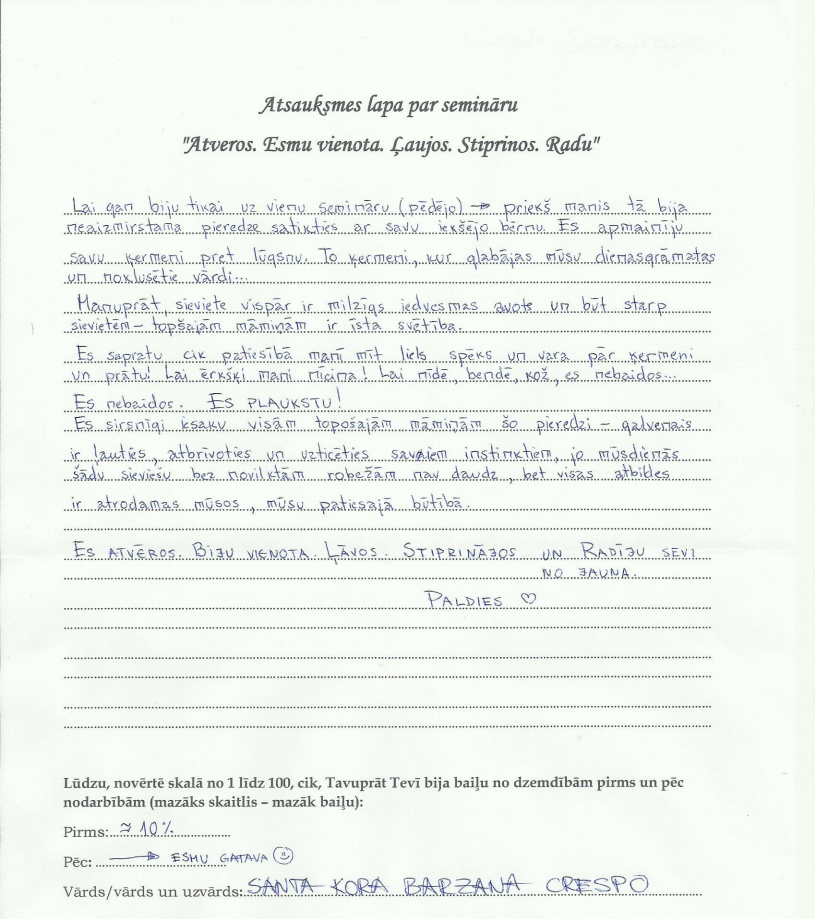 Atsauksmes lapa par semināru
"Atveros. Esmu vienota. Ļaujos. Stiprinos. Radu"
Lai gan biju tikai uz vienu semināru (pēdējo) → priekš manis tā bija
neaizmirstama pieredze satikties ar savu iekšējo bērnu. Es apmainīju
savu ķermeni pret lūgsnu. To ķermeni, kur glabājas mūsu dienasgrāmatas
un noklusētie vārdi...
Manuprāt, sieviete vispār ir milzīgs iedvesmas avots un būt starp
sievietēm – topšajām māmiņām ir īsta svētība.
Es sapratu cik patiesībā manī mīt liels spēks un vara pār ķermeni
un prātu! Lai ērkšķi mani mīcina! Lai nīdē, bendē, kož, es nebaidos...
Es nebaidos. ES PLAUKSTU!
Es sirsnīgi iesaku visām topošajām māmiņām šo pieredzi – galvenais
ir ļauties, atbrīvoties un uzticēties savaiem instinktiem, jo mūsdienās
šādu sieviešu bez novilktām robežām nav daudz, bet visas atbildes
ir atrodamas mūsos, mūsu patiesajā būtībā.
ES ATVĒROS. BIJU VIENOTA. ĻĀVOS. STIPRINĀJOS UN RADĪJU SEVI
NO JAUNA.
PALDIES ♡
Lūdzu, novērtē skalā no 1 līdz 100, cik, Tavuprāt Tevī bija baiļu no dzemdībām pirms un pēc
nodarbībām (mazāks skaitlis – mazāk baiļu):
Pirms: ≈ 10%
Pēc: → ESMU GATAVA ☺
Vārds/vārds un uzvārds: SANTA KORA BARZANA CRESPO